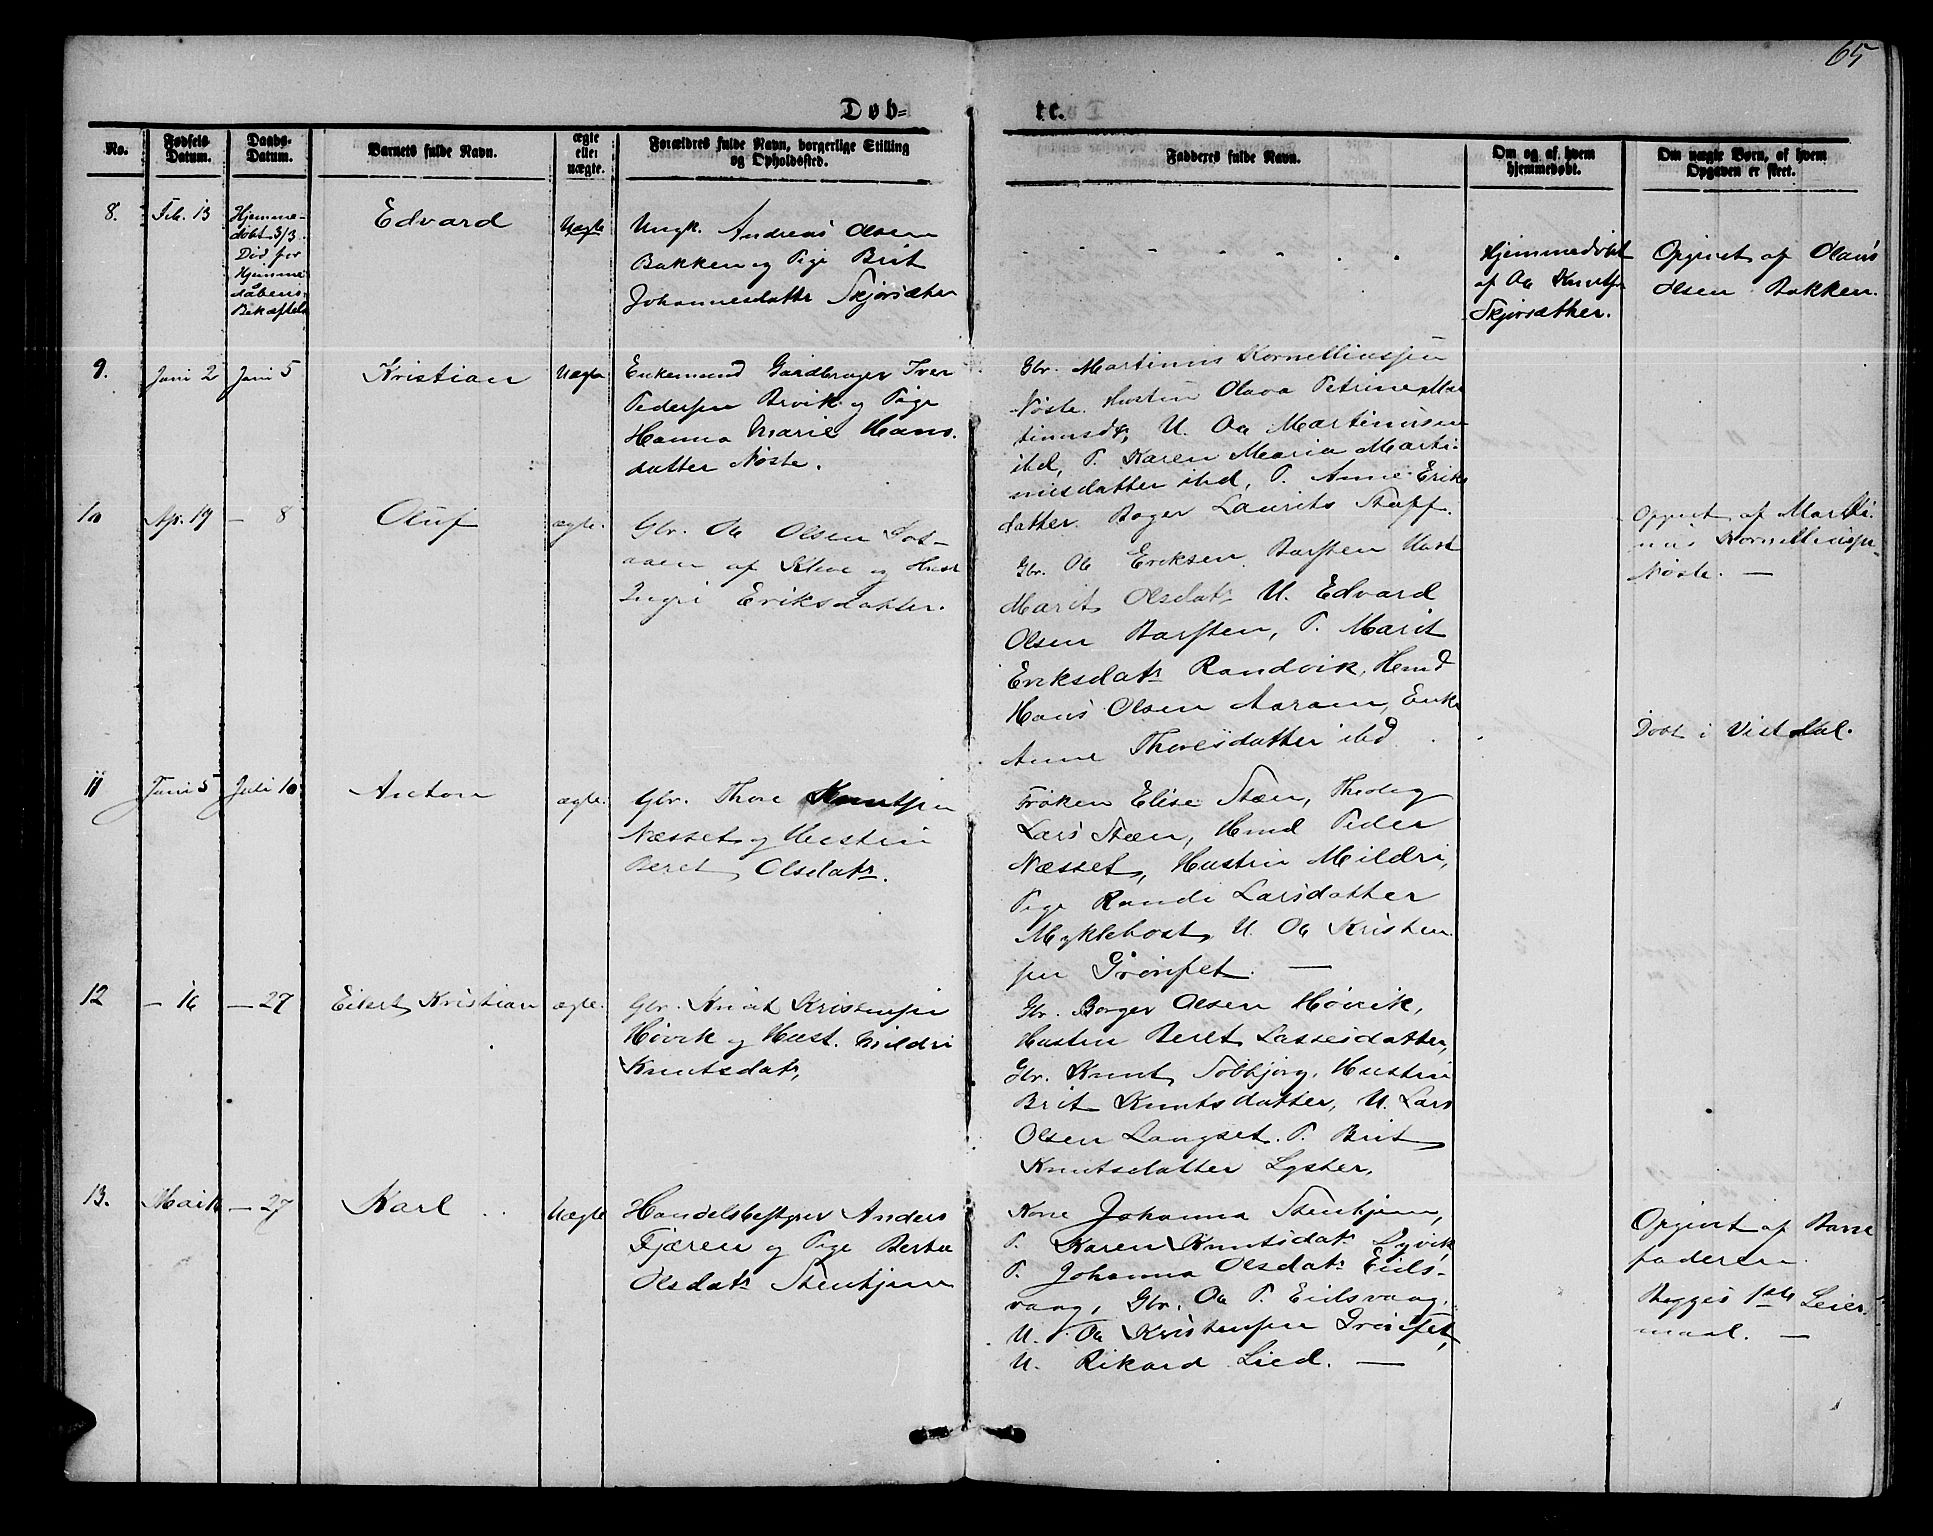 65
Døb=
te.
No.
Fødsels
Datum.
Daabs-
Datum.
Barnets fulde Navn.
ægte
eller
uægte.
Forældres fulde Navn, borgerlige Stilling
og Opholdssted.
Fadderes fulde Navn.
Om og af hvem
hjemmedøbt.
Om uægte Børn, af hvem
Opgaven er skeet.
8.
Feb. 13
Hjemme-
døbt 3/3.
Død før
Hjemme
dåbens
Bekræftels
Edvard
Uægte
Ungk. Andreas Olsen
Bakken og Pige Brit
Johannesdatter Skjørsæther
Hjemmedøbt
af Ole Knuts.
Skjørsæther.
Opgivet af Olaus
Olsen Bakken.
9.
Juni 2
Juni 5
Kristian
Uægte
Enkemand Gårdbruger Iver
Pedersen Brvik og Pige
Hanna Marie Hans-
datter Nøste.
Gbr. Martinus Kornelliussen
Nøste. Hustru Olava Petrine Mar
tinusdr, U. Ole Martinusen
ibd, P. Karen Maria Marti-
nusdatter ibd, P. Anne Eriks
datter. Bager Laurits Stapf.
Opgivet af Marti-
nus Kornelliussen
Nøste. —
10
Ap. 19
— 8
Oluf
ægte.
Gbr. Ole Olsen
af Kleve og Hust
Ingri Eriksdatter.
Gbr. Ole Eriksen Barsten Hust
Marit Olsdatr U. Edvard
Olsen Barsten, P. Marit
Eriksdatr Randvik, Hmd
Hans Olsen Aaram, Enke
Anne Thoresdatter ibd
Døbt i Vistdal.
11
Juni 5
Juli 10
Anton
ægte.
Gbr. Thore Knutsen
Næsset og Hustru
Beret Olsdatr.
Frøken Elise Stæn, Theolog
Lars Stæn, Hmd Peder
Næsset, Hustru Mildri,
Pige Randi Larsdatter
Myklebost, U. Ole Kristen-
sen Grønset. —
12
— 16
— 27
Eilert Kristian
ægte.
Gbr. Knut Kristensen
Høvik og Hust. Mildri
Knutsdatr,
Gbr. Borger Olsen Høvik,
Hustru Beret Lassesdatter,
Gbr. Knut Solbjørg, Hustru
Brit Knutsdatter, U. Lars
Olsen Langset. P. Brit
Knutsdatter Lyster,
13.
— 27
Karl
Uægte
Handelsbestyrer Anders
Fjæren og Pige Berta
Olsdatr Stenhjem
Kone Johanna Stenhjem,
P. Karen Knutsdatr Lyvik
P. Johanna Olsdatr Eids-
vaag, Gbr. Ole P. Eidsvaag,
U. Ole Kristensen Grønset,
U. Rikard Lied. —
Opgivet af Barne
faderen.
Begges 1ste Leier-
maal. —